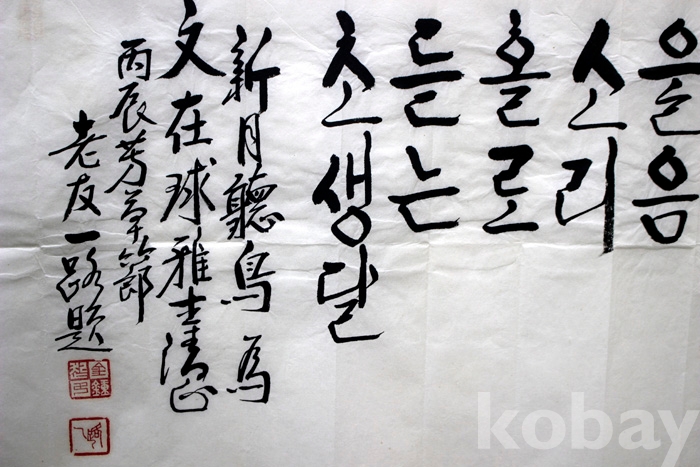 울음
소리
홀로
듣는
초생달
新月聽鳥 為
文在球雅士清正
丙辰芳草節
老友一路題
kobay